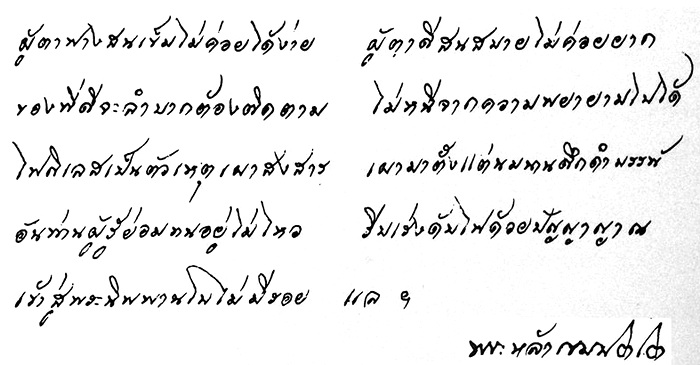 ผู้ตาฟางสนเข็มไม่ค่อยได้ง่าย ผู้ตาดีสนสบายไม่ค่อยยาก
ของที่ดีจะลำบากต้องติดตาม ไม่หนีจากความพยายามไปได้
ไฟกิเลสเป็นตัวเหตุเผาสงสาร เผามาตั้งแต่นมนานดึกดำบรรพ์
อันท่านผู้รู้ย่อมทนอยู่ไม่ไหว รีบเร่งดับไฟด้วยปัญญาญาณ
เข้าสู่พระนิพพานไปไม่มีรอย แล ฯ
พระหล้า เขมปตฺโต